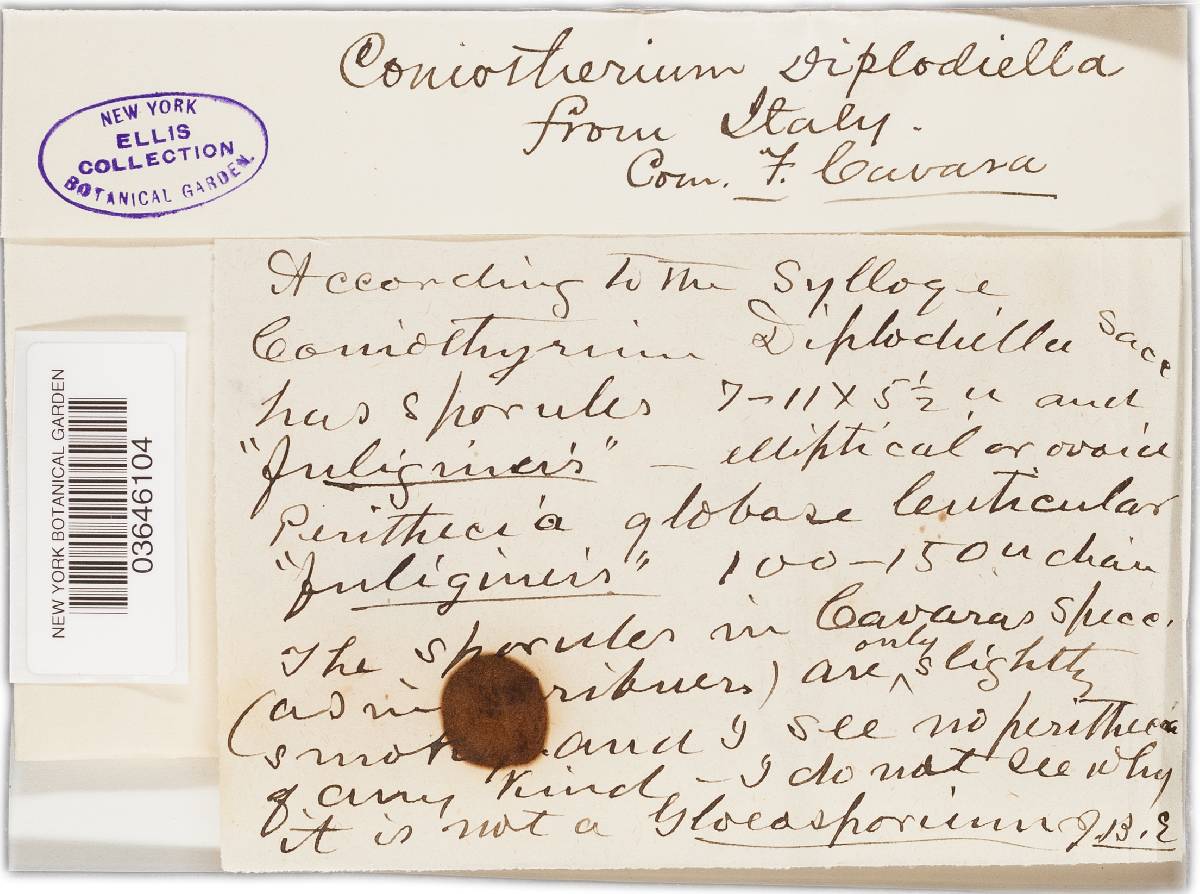 Coniotherium Diplodiella
from Italy.
Com. F. Cavara
NEW YORK
ELLIS
COLLECTION
BOTANICAL GARDEN.
According to the Sylloge
Coniothyrium Diplodiella Sacc
has sporules 7-11 X 5 1/2 u and
"fuligineis" — elliptical or ovoid
Perithecia globose lenticular
"fuligineis" 100-150 u diam
The sporules in Cavaras spec.
(as in ribners) are only slightly
smoky and I see no perithecia
of any kind – I do not see why
it is not a Gloeosporium J.B.E
NEW YORK BOTANICAL GARDEN
03646104